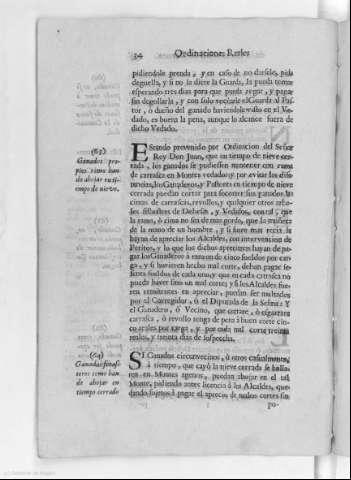 34 Ordinationes Reales
pidiendole prenda, y en caso de no darsela, pida
deguella, y si no la diere la Guarda, la pueda tomar
esperando tres dias para que pueda pagar, y pagar
sin degollarla, y con solo vocearle el Guarda al Pas-
tor, ò dueño del ganado haviendole visto en el Ve-
dado, es buena la pena, aunque lo alcance fuera de
dicho Vedado.
(63)
Ganados pro-
pios como han
de abojar en ti-
empo de nieve.
EStando prevenido por Ordinacion del Señor
Rey Don Juan, que en tiempo de nieve cer-
rada, los ganados se pudiessen mantener con rama
de carrasca en Montes vedados, y por evitar los dis-
turbios, los Ganaderos, y Pastores en tiempo de nieve
cerrada puedan cortar para socorrer sus ganados las
cimas de carrascas, revollos, y qualquier otros arbo-
les silvestres de Dehesas, y Vedados, con tal, que
la rama, ò cima no sea de mas gordo, que la muñeca
de la mano de un hombre, y si fuere mas recia la
hayan de apreciar los Alcaldes, con intervencion de
Peritos, y lo que los dichos apreciaren hayan de pa-
gar los Ganaderos à razon de cinco sueldos por car-
ga, y si huvieren hecho mal corte, deban pagar se-
senta sueldos de cada uno, y que en cada carrasca no
puede haver sino un mal corte; y si los Alcaldes fue-
ren remitentes en apreciar, puedan ser multados
por el Corregidor, ò el Diputado de la Sesma: Y
el Ganadero, ò Vecino, que cortare, ò esgarrare
carrasca, ò revollo tenga de pena à buen corte cin-
co reales por carga, y por cada mal corte treinta
reales, y treinta dias de sospecha.
(64)
Ganados foras-
teros como han
de abojar en
tiempo cerrado
SI Ganados circunvecinos, ù otros casualmente,
à tiempo, que cayò la nieve cerrada se halla-
ren en Montes agenos, puedan abojar en el tal
Monte, pidiendo antes licencia à los Alcaldes, que-
dando sujetos à pagar el aprecio de malos cortes sin
po-